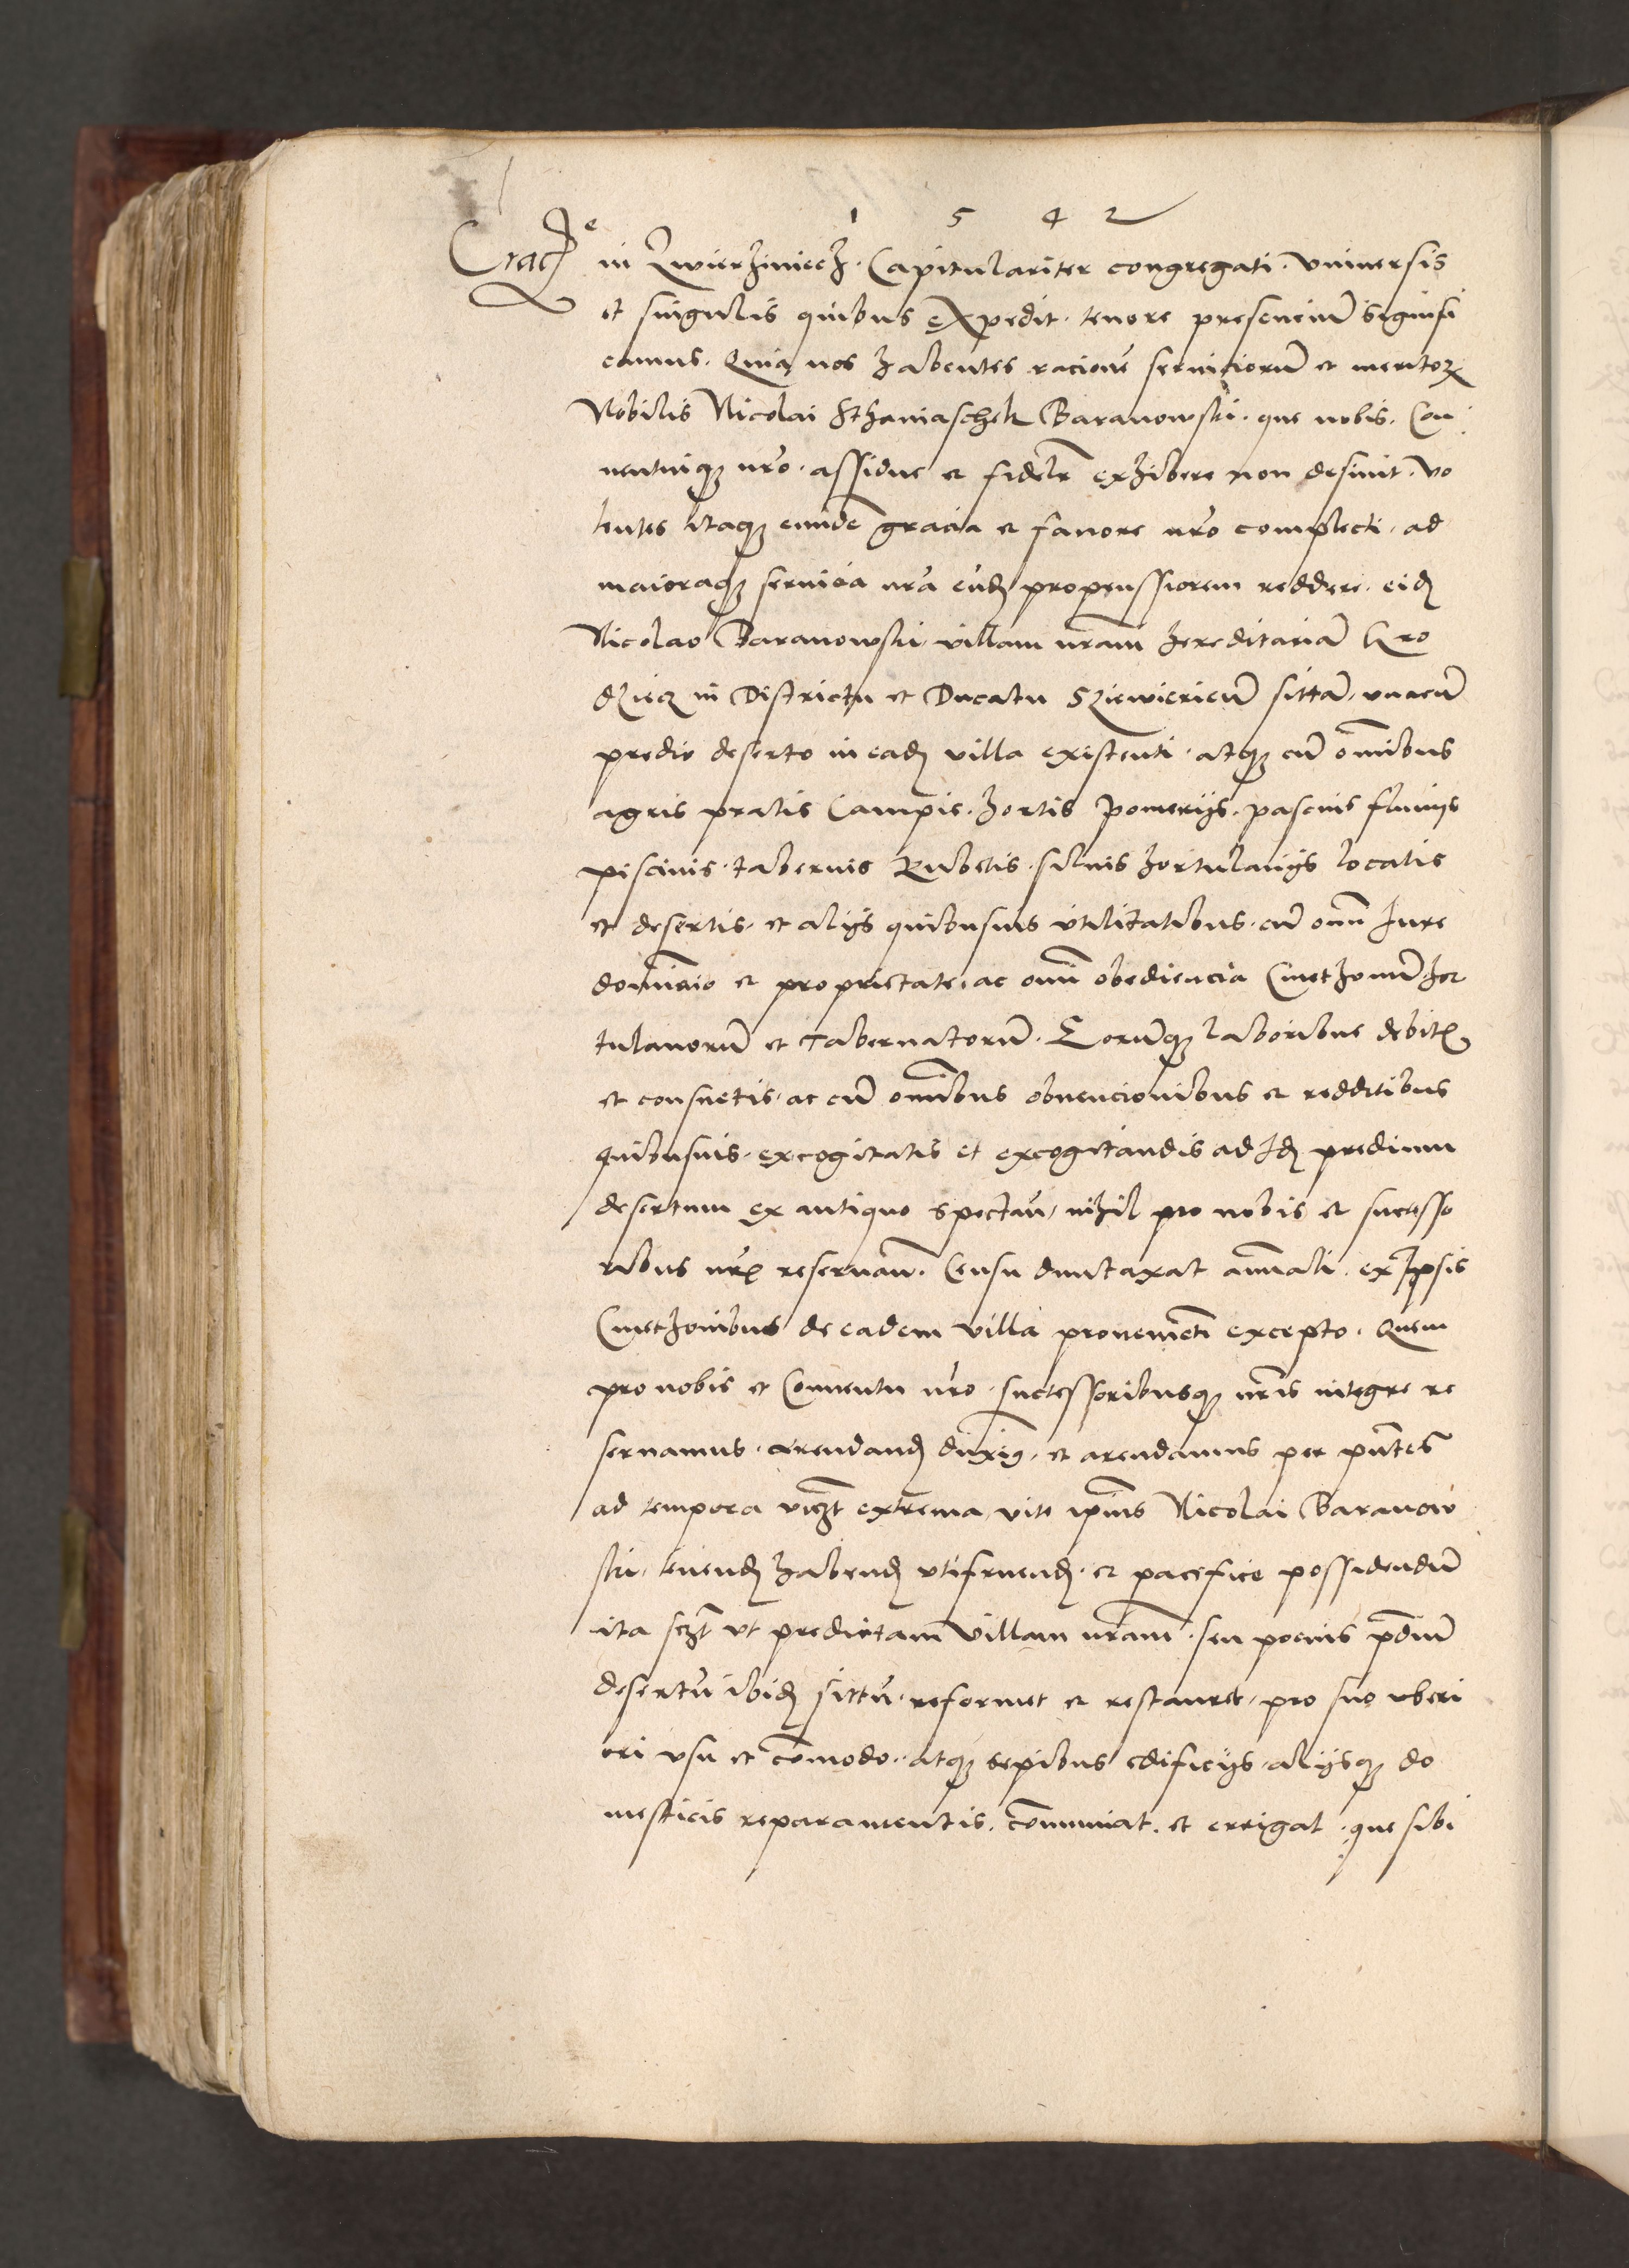 1 5 4 2
Crac̄ᵉ in Zwierziniecz. Capitulariter congregati. Vniuersis
et singulis quibus expedit. tenore presenciū signifi
camus. Quia nos habentes racionē seruiciorū et meritoꝝ
Nobilis Nicolai Sthaniaschek Baranowski. que nobis. Con
uentuiqꝫ nr̄o. assidue et fidelr̄ exhibere non desinit. Vo
lentes itaqꝫ eundē gracia et fauore nr̄o complecti. ad
maioraqꝫ seruicia nr̄a eūdꝫ propenssiorem reddere. eidꝫ
Nicolao Baranowski villam nr̄am hereditariā Gro
dziecz in Districtu et Ducatu Sziewieriēn̄ sittā, vnacū
predio deserto in eadꝫ villa existenti. atqꝫ cū om̄ibus
agris pratis Campis. hortis Pomerijs. pascuis fluuijs
piscinis. tabernis Rubetis. siluis hortulanijs locatis
et desertis. et alijs quibusuis vtilitatibus. cū omni Iure
dominio et proprietate. ac omni obediencia Cmethonum. hor
tulanorū et Tabernatorū. Eorūqꝫ laboribus debitꝭ
et consuetis. ac cū om̄ibus obuencionibus et redditibus
quibusuis. excogitatis et excogitandis ad idꝫ predium
desertum ex antiquo spectan̄, nihil pro nobis et successo
ribus nr̄is reseruan̄. Censu duntaxat annuali. ex Ipsis
Cmethonibus de eadem villa proueniēti excepto. Quem
pro nobis et Conuentu nr̄o. successoribusqꝫ nr̄is integre re
seruamus. arendandꝫ duximꝯ. et arendamus per pn̄tes
ad tempora vitꝫ extrema vite ip̄ius Nicolai Baranow
ski. tenendꝫ habendꝫ vtifruendꝫ. et pacifice possidendū
ita scꝫt vt predictam villam nr̄am. seu pocius p̄diū
desertū ibidꝫ sittū. reformet et restauret, pro suo vberi
ori vsu et cōmodo. atqꝫ sepibus edificijs. alijsqꝫ do
mesticis reparamentis. cōmuniat. et errigat. que sibi